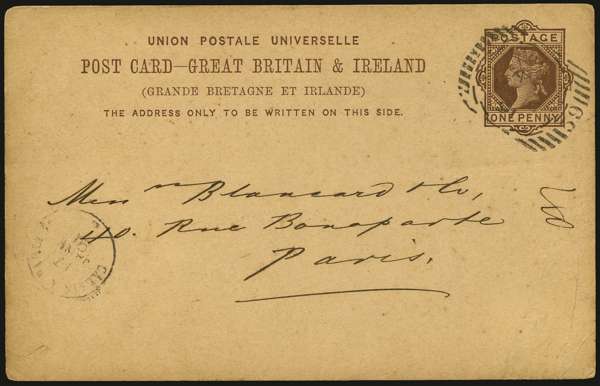 UNION POSTALE UNIVERSELLE
POST CARD—GREAT BRITAIN & IRELAND
(GRANDE BRETAGNE ET IRLANDE)
THE ADDRESS ONLY TO BE WRITTEN ON THIS SIDE.
POSTAGE
ONE PENNY
Messrs Blancard & Co,
40. Rue Bonaparte
Paris.